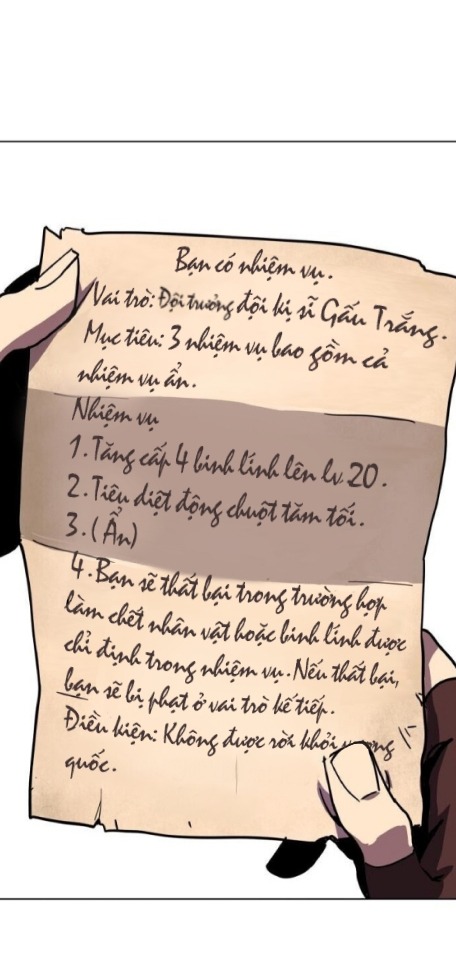 Bạn có nhiệm vụ.
Vai trò: Đội trưởng đội kị sĩ Gấu Trắng.
Mục tiêu: 3 nhiệm vụ bao gồm cả
nhiệm vụ ẩn.
Nhiệm vụ
1. Tăng cấp 4 binh lính lên lv 20.
2. Tiêu diệt động chuột tăm tối.
3. (Ẩn)
4. Bạn sẽ thất bại trong trường hợp
làm chết nhân vật hoặc binh lính được
chỉ định trong nhiệm vụ. Nếu thất bại,
bạn sẽ bị phạt ở vai trò kế tiếp.
Điều kiện: Không được rời khỏi
quốc.